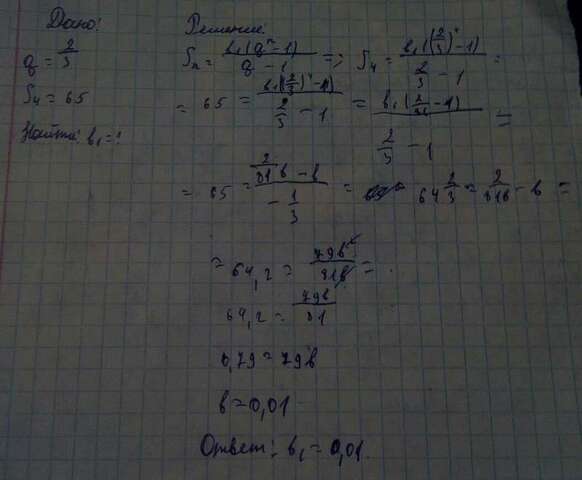 Дано:
q = 2/3
S₄ = 65
Найти: b₁ = ?
Решение.
Sₙ = b₁(qⁿ - 1)/(q - 1) => S₄ = b₁((2/3)⁴ - 1)/(2/3 - 1) =
= 65 = b₁((2/3)⁴ - 1)/(2/3 - 1) = b₁(2/81 - 1)/(2/3 - 1) =
= 65 = (2/81 b - b)/(- 1/3) = 64 2/3 = 2/81b - b =
= 64,2 = 79b²/81b =
64,2 = 79b/81
0,79 = 79b
b = 0,01
Ответ: b₁ = 0,01.